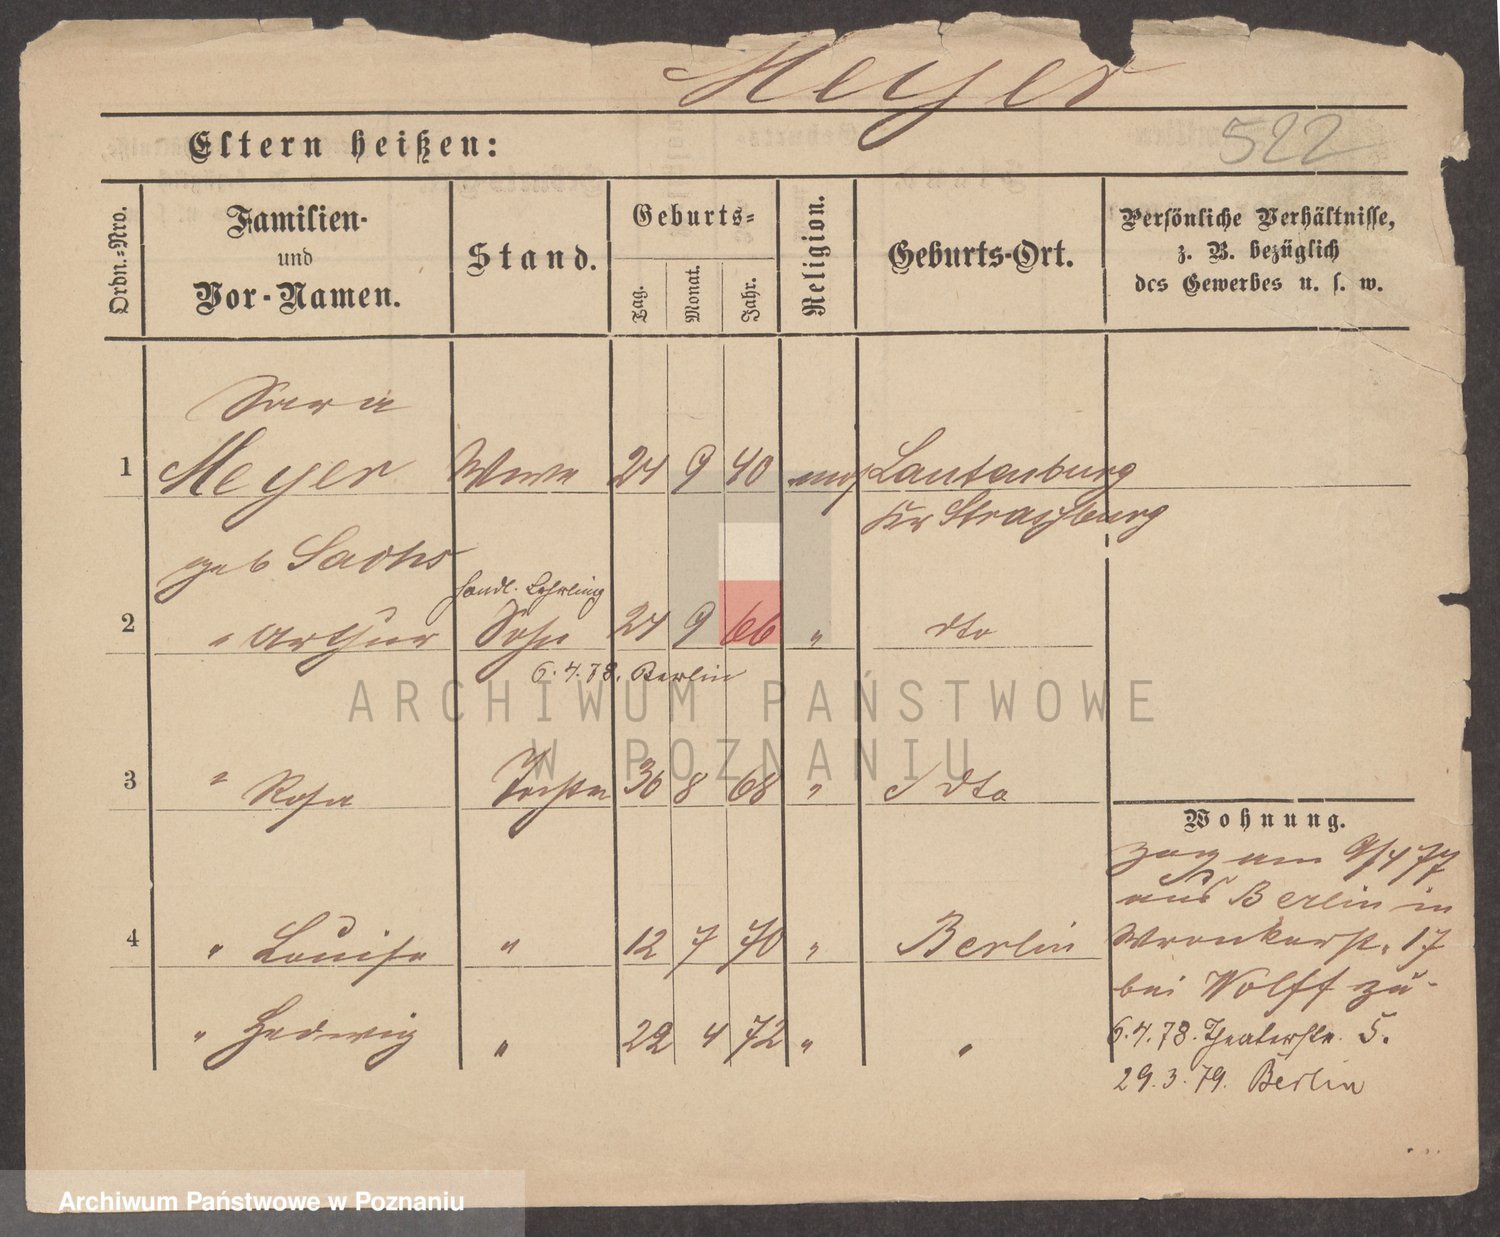 Meyer
Eltern heißen:
522
Ordn.-Nro.
Familien-
und
Vor-Namen.
Stand.
Geburts-
Tag.
Monat.
Jahr.
Religion.
Geburts-Ort.
Persönliche Verhältnisse,
z. B. bezüglich
des Gewerbes u. s. w.
Sara
1 Meyer Wwe 24 9 40 mos Lautenburg
Kr Strassburg
geb Sachs
Handl. Lehrling
2 " Arthur Sohn 24 9 66 " dto
6.4.78. Berlin
ARCHIWUM PAŃSTWOWE
W POZNANIU
3 " Rosa Tochter 30 8 68 " dto
Wohnung.
zog am 9/4 77
aus Berlin in
4 " Louise " 12 7 70 " Berlin
Wronkerstr. 17
bei Wolff zu-
" Hedwig " 22 4 72 " "
6.4.78. Theaterstr. 5.
29.3.79. Berlin
Archiwum Państwowe w Poznaniu